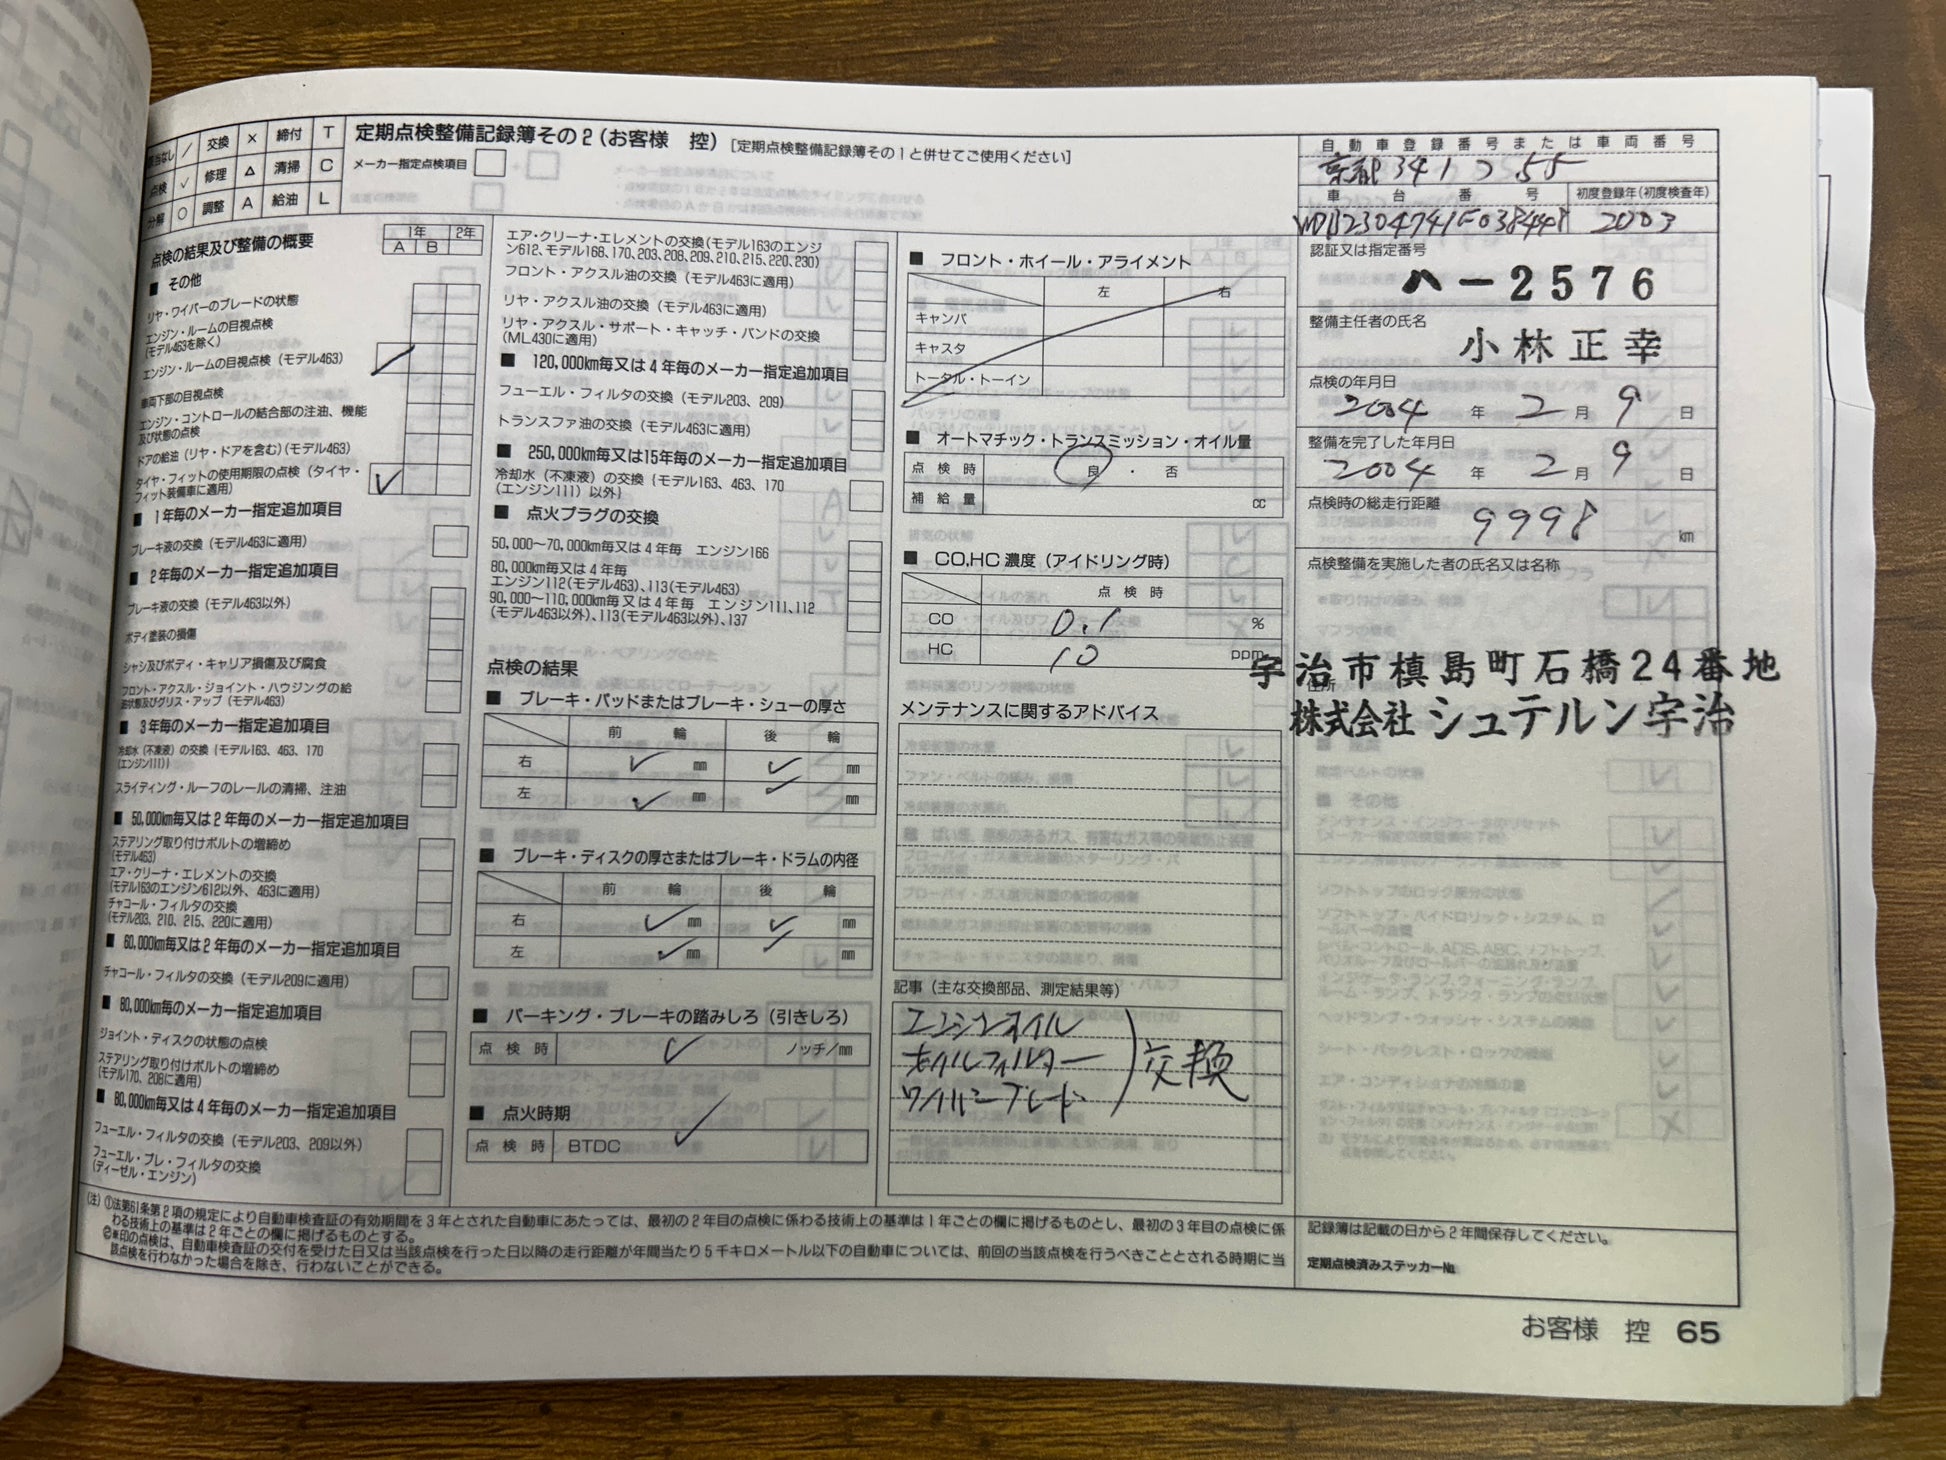 交換 × 締付 T
点検 ✓ 修理 △ 清掃 C
分解 ○ 調整 A 給油 L
定期点検整備記録簿その2(お客様 控)[定期点検整備記録簿その1と併せてご使用ください]
メーカー指定点検項目
点検の結果及び整備の概要
1年 2年
A B
■ その他
リヤ・ワイパーのブレードの状態
エンジン・ルームの目視点検
(モデル463を除く)
エンジン・ルームの目視点検(モデル463)
車両下部の目視点検
エンジン・コントロールの結合部の注油、機能
及び状態の点検
ドアの給油(リヤ・ドアを含む)(モデル463)
タイヤ・フィットの使用期限の点検(タイヤ・
フィット装備車に適用)
■ 1年毎のメーカー指定追加項目
ブレーキ液の交換(モデル463に適用)
■ 2年毎のメーカー指定追加項目
ブレーキ液の交換(モデル463以外)
ボディ塗装の損傷
シャシ及びボディ・キャリア損傷及び腐食
フロント・アクスル・ジョイント・ハウジングの給
油状態及びグリス・アップ(モデル463)
■ 3年毎のメーカー指定追加項目
冷却水(不凍液)の交換{モデル163、463、170
(エンジン111)}
スライディング・ルーフのレールの清掃、注油
■ 50,000km毎又は2年毎のメーカー指定追加項目
ステアリング取り付けボルトの増締め
(モデル463)
エア・クリーナ・エレメントの交換
(モデル163のエンジン612以外、463に適用)
チャコール・フィルタの交換
(モデル203、210、215、220に適用)
■ 60,000km毎又は2年毎のメーカー指定追加項目
チャコール・フィルタの交換(モデル209に適用)
■ 80,000km毎のメーカー指定追加項目
ジョイント・ディスクの状態の点検
ステアリング取り付けボルトの増締め
(モデル170、208に適用)
■ 80,000km毎又は4年毎のメーカー指定追加項目
フューエル・フィルタの交換(モデル203、209以外)
フューエル・プレ・フィルタの交換
(ディーゼル・エンジン)
エア・クリーナ・エレメントの交換(モデル163のエンジ
ン612、モデル168、170、203、208、209、210、215、220、230)
フロント・アクスル油の交換(モデル463に適用)
リヤ・アクスル油の交換(モデル463に適用)
リヤ・アクスル・サポート・キャッチ・バンドの交換
(ML430に適用)
■ 120,000km毎又は4年毎のメーカー指定追加項目
フューエル・フィルタの交換(モデル203、209)
トランスファ油の交換(モデル463に適用)
■ 250,000km毎又は15年毎のメーカー指定追加項目
冷却水(不凍液)の交換{モデル163、463、170
(エンジン111)以外}
■ 点火プラグの交換
50,000〜70,000km毎又は4年毎 エンジン166
80,000km毎又は4年毎
エンジン112(モデル463)、113(モデル463)
90,000〜110,000km毎又は4年毎 エンジン111、112
(モデル463以外)、113(モデル463以外)、137
点検の結果
■ ブレーキ・パッドまたはブレーキ・シューの厚さ
前 輪 後 輪
右 ✓ mm ✓ mm
左 ✓ mm ✓ mm
■ ブレーキ・ディスクの厚さまたはブレーキ・ドラムの内径
前 輪 後 輪
右 ✓ mm ✓ mm
左 ✓ mm ✓ mm
■ パーキング・ブレーキの踏みしろ(引きしろ)
点検時 ✓ ノッチ/mm
■ 点火時期
点検時 BTDC ✓
■ フロント・ホイール・アライメント
左 右
キャンバ
キャスタ
トータル・トーイン
■ オートマチック・トランスミッション・オイル量
点検時 良・否
補給量 cc
■ CO,HC濃度(アイドリング時)
点検時
CO 0.1 %
HC 10 ppm
メンテナンスに関するアドバイス
記事(主な交換部品、測定結果等)
エンジンオイル
オイルフィルター
ワイパーブレード
交換
自動車登録番号または車両番号
車台番号 初度登録年(初度検査年)
2003
認証又は指定番号
ハー2576
整備主任者の氏名
小林正幸
点検の年月日
2004年2月9日
整備を完了した年月日
2004年2月9日
点検時の総走行距離
9998 km
点検整備を実施した者の氏名又は名称
住所
宇治市槙島町石橋24番地
株式会社シュテルン宇治
(注)①法第61条第2項の規定により自動車検査証の有効期間を3年とされた自動車にあたっては、最初の2年目の点検に係わる技術上の基準は1年ごとの欄に掲げるものとし、最初の3年目の点検に係
わる技術上の基準は2年ごとの欄に掲げるものとする。
②※印の点検は、自動車検査証の交付を受けた日又は当該点検を行った日以降の走行距離が年間当たり5千キロメートル以下の自動車については、前回の当該点検を行うべきこととされる時期に当
該点検を行わなかった場合を除き、行わないことができる。
記録簿は記載の日から2年間保存してください。
定期点検済みステッカー№
お客様 控 65